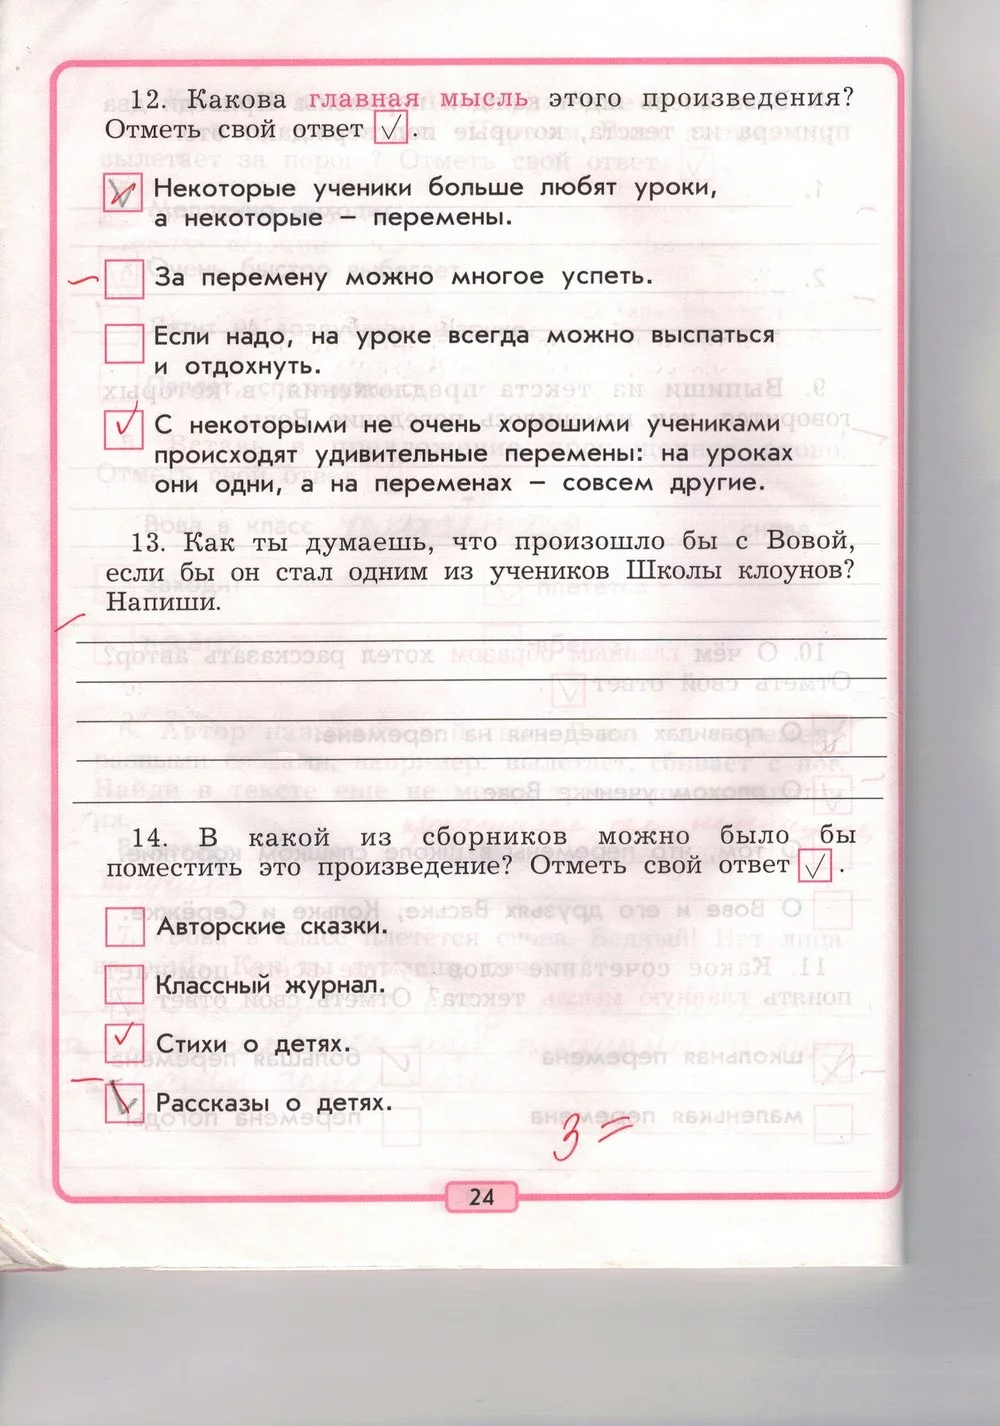 12. Какова главная мысль этого произведения?
Отметь свой ответ ✓.
Некоторые ученики больше любят уроки,
а некоторые – перемены.
За перемену можно многое успеть.
Если надо, на уроке всегда можно выспаться
и отдохнуть.
С некоторыми не очень хорошими учениками
происходят удивительные перемены: на уроках
они одни, а на переменах – совсем другие.
13. Как ты думаешь, что произошло бы с Вовой,
если бы он стал одним из учеников Школы клоунов?
Напиши.
14. В какой из сборников можно было бы
поместить это произведение? Отметь свой ответ ✓.
Авторские сказки.
Классный журнал.
Стихи о детях.
Рассказы о детях.
3=
24